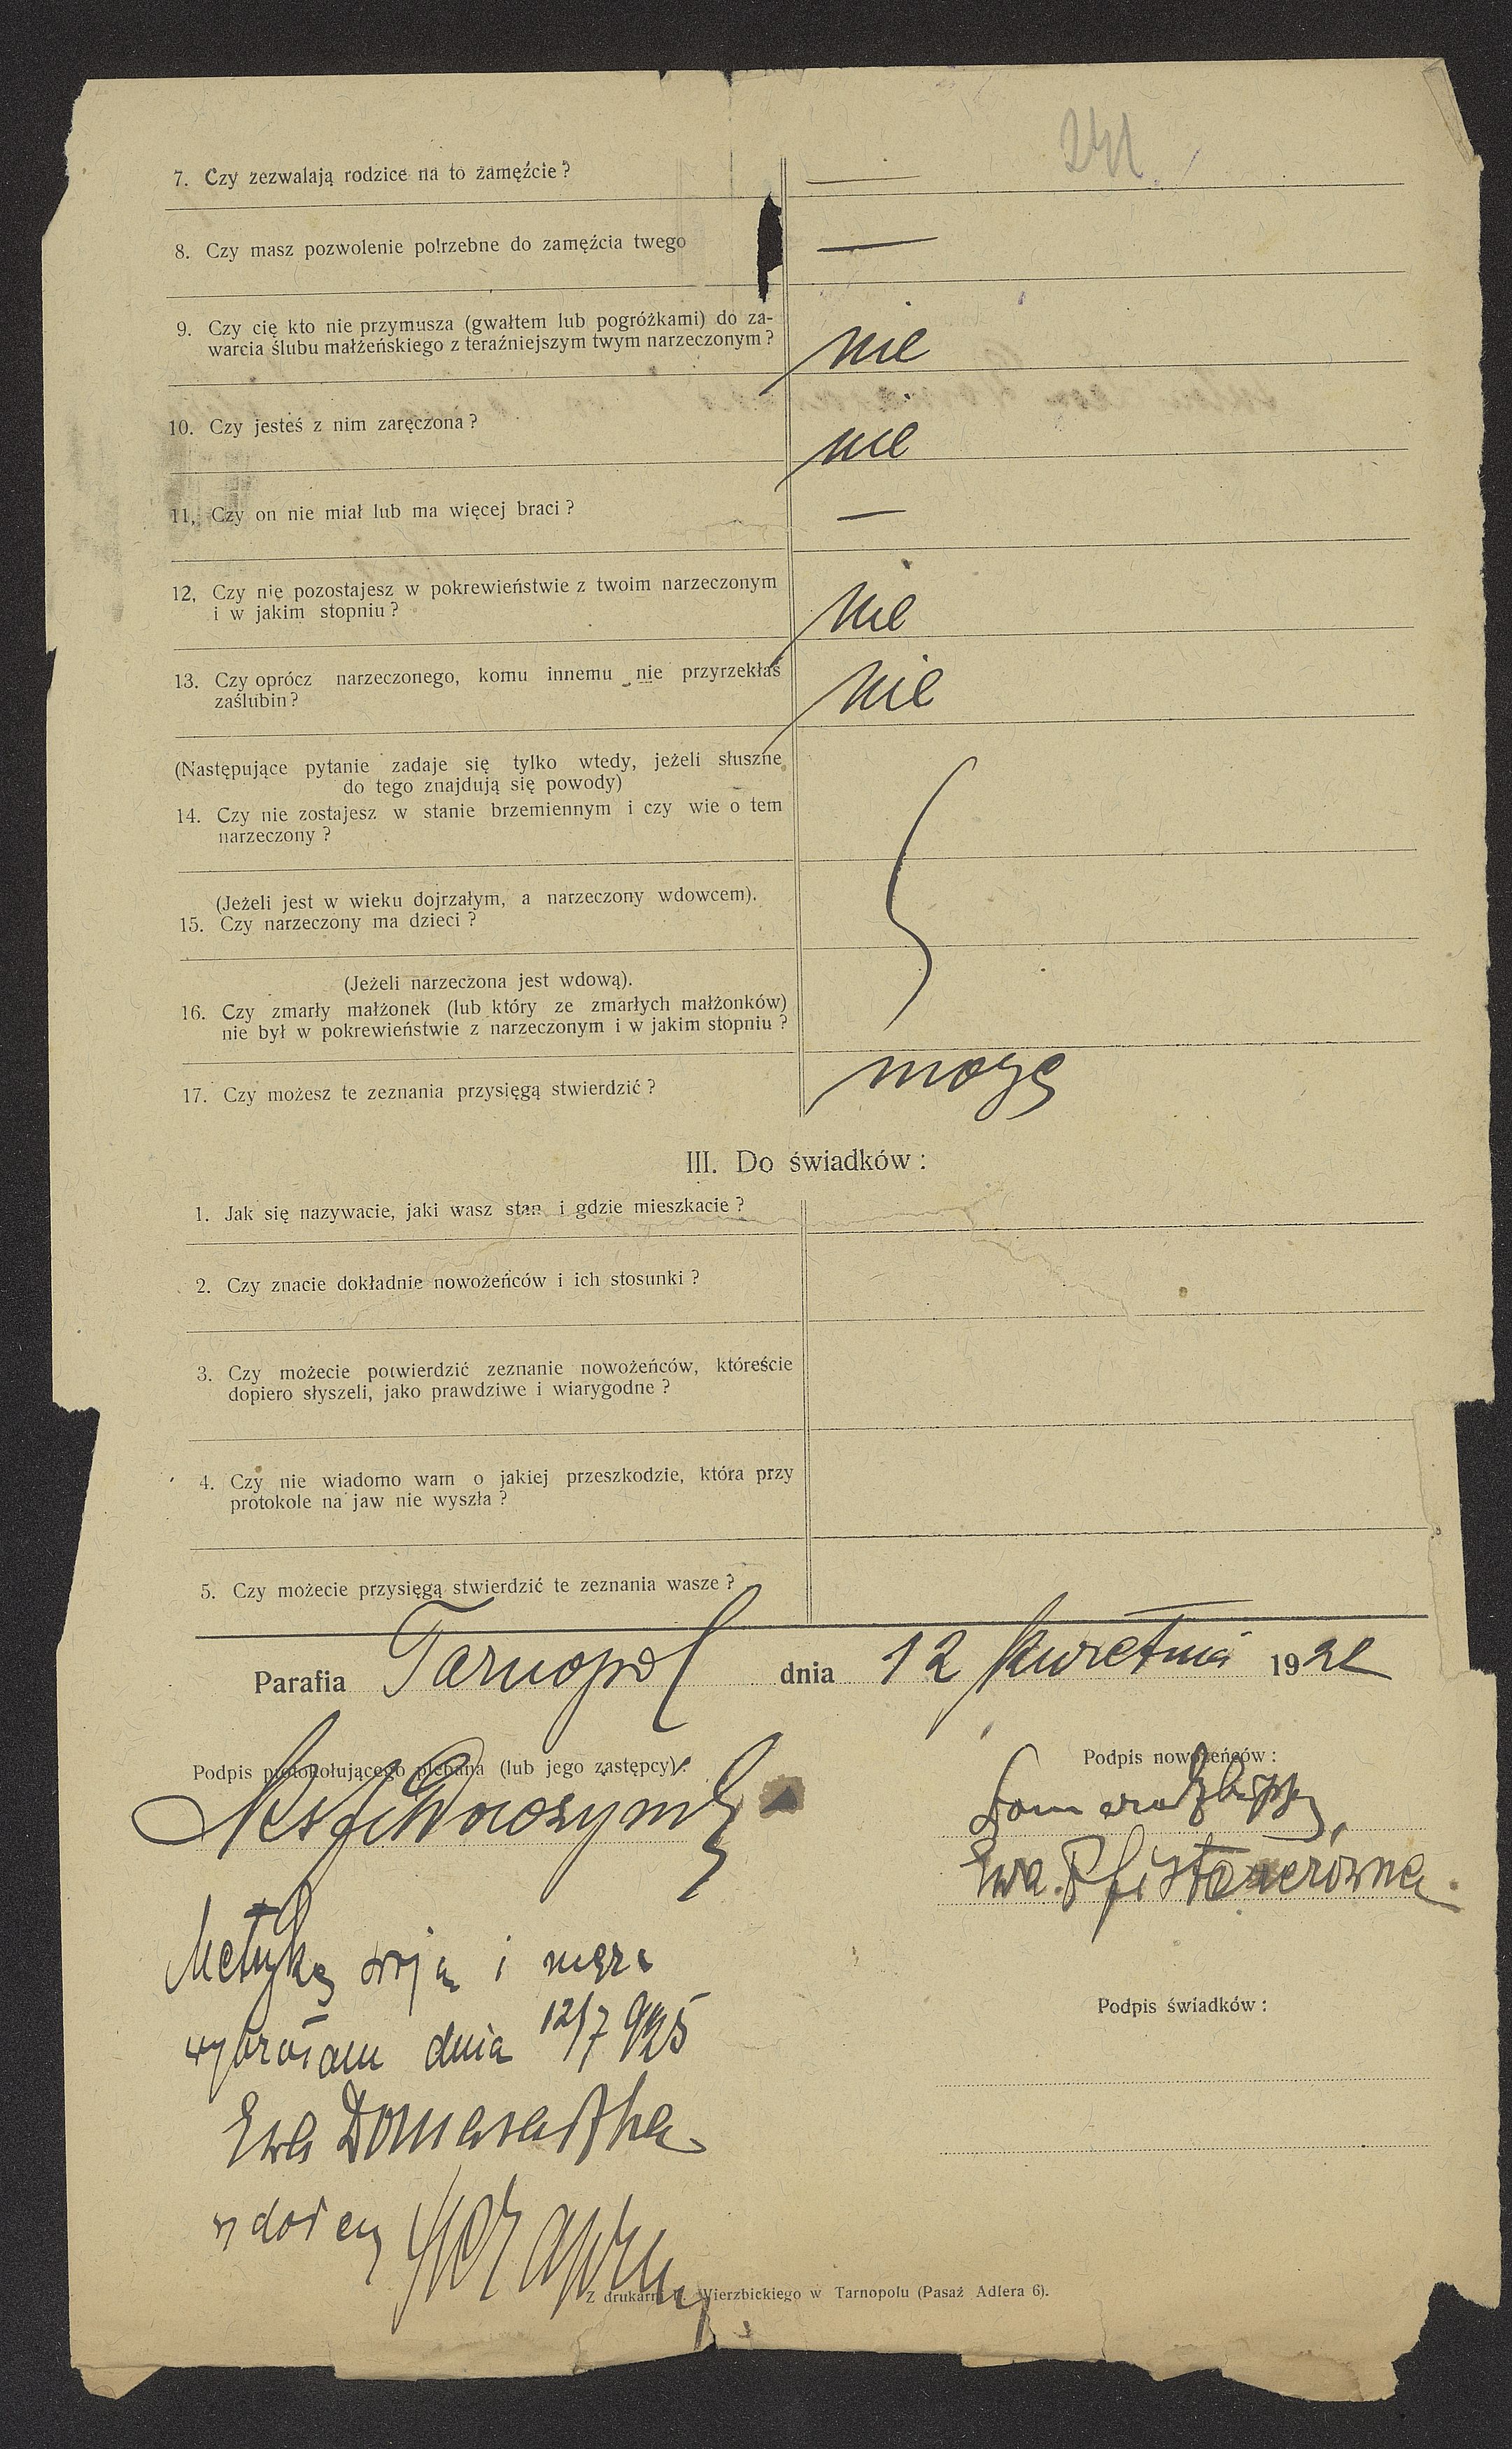 241
7. Czy zezwalają rodzice na to zamężcie ? —
8. Czy masz pozwolenie potrzebne do zamęźcia twego —
9. Czy cię kto nie przymusza (gwałtem lub pogróżkami) do za-
warcia ślubu małżeńskiego z teraźniejszym twym narzeczonym ? nie
10. Czy jesteś z nim zaręczona ? nie
11, Czy on nie miał lub ma więcej braci ? —
12, Czy nie pozostajesz w pokrewieństwie z twoim narzeczonym
i w jakim stopniu ? nie
13. Czy oprócz narzeczonego, komu innemu nie przyrzekłaś
zaślubin ? nie
(Następujące pytanie zadaje się tylko wtedy, jeżeli słuszne
do tego znajdują się powody)
14. Czy nie zostajesz w stanie brzemiennym i czy wie o tem
narzeczony ?
(Jeżeli jest w wieku dojrzałym, a narzeczony wdowcem).
15. Czy narzeczony ma dzieci ?
(Jeżeli narzeczona jest wdową).
16. Czy zmarły małżonek (lub który ze zmarłych małżonków)
nie był w pokrewieństwie z narzeczonym i w jakim stopniu ?
17. Czy możesz te zeznania przysięgą stwierdzić ? mogę
III. Do świadków :
1. Jak się nazywacie, jaki wasz stan i gdzie mieszkacie ?
2. Czy znacie dokładnie nowożeńców i ich stosunki ?
3. Czy możecie potwierdzić zeznanie nowożeńców, któreście
dopiero słyszeli, jako prawdziwe i wiarygodne ?
4. Czy nie wiadomo wam o jakiej przeszkodzie, która przy
protokole na jaw nie wyszła ?
5. Czy możecie przysięgą stwierdzić te zeznania wasze ?
Parafia Tarnopol dnia 12 kwietnia 1922
Podpis protokołującego plebana (lub jego zastępcy) :
Podpis nowożeńców :
Ewa
Metrykę moją i męża
wybrałam dnia 12/7 925
Ewa Domaradzka
Podpis świadków :
Z drukarni Wierzbickiego w Tarnopolu (Pasaż Adlera 6).